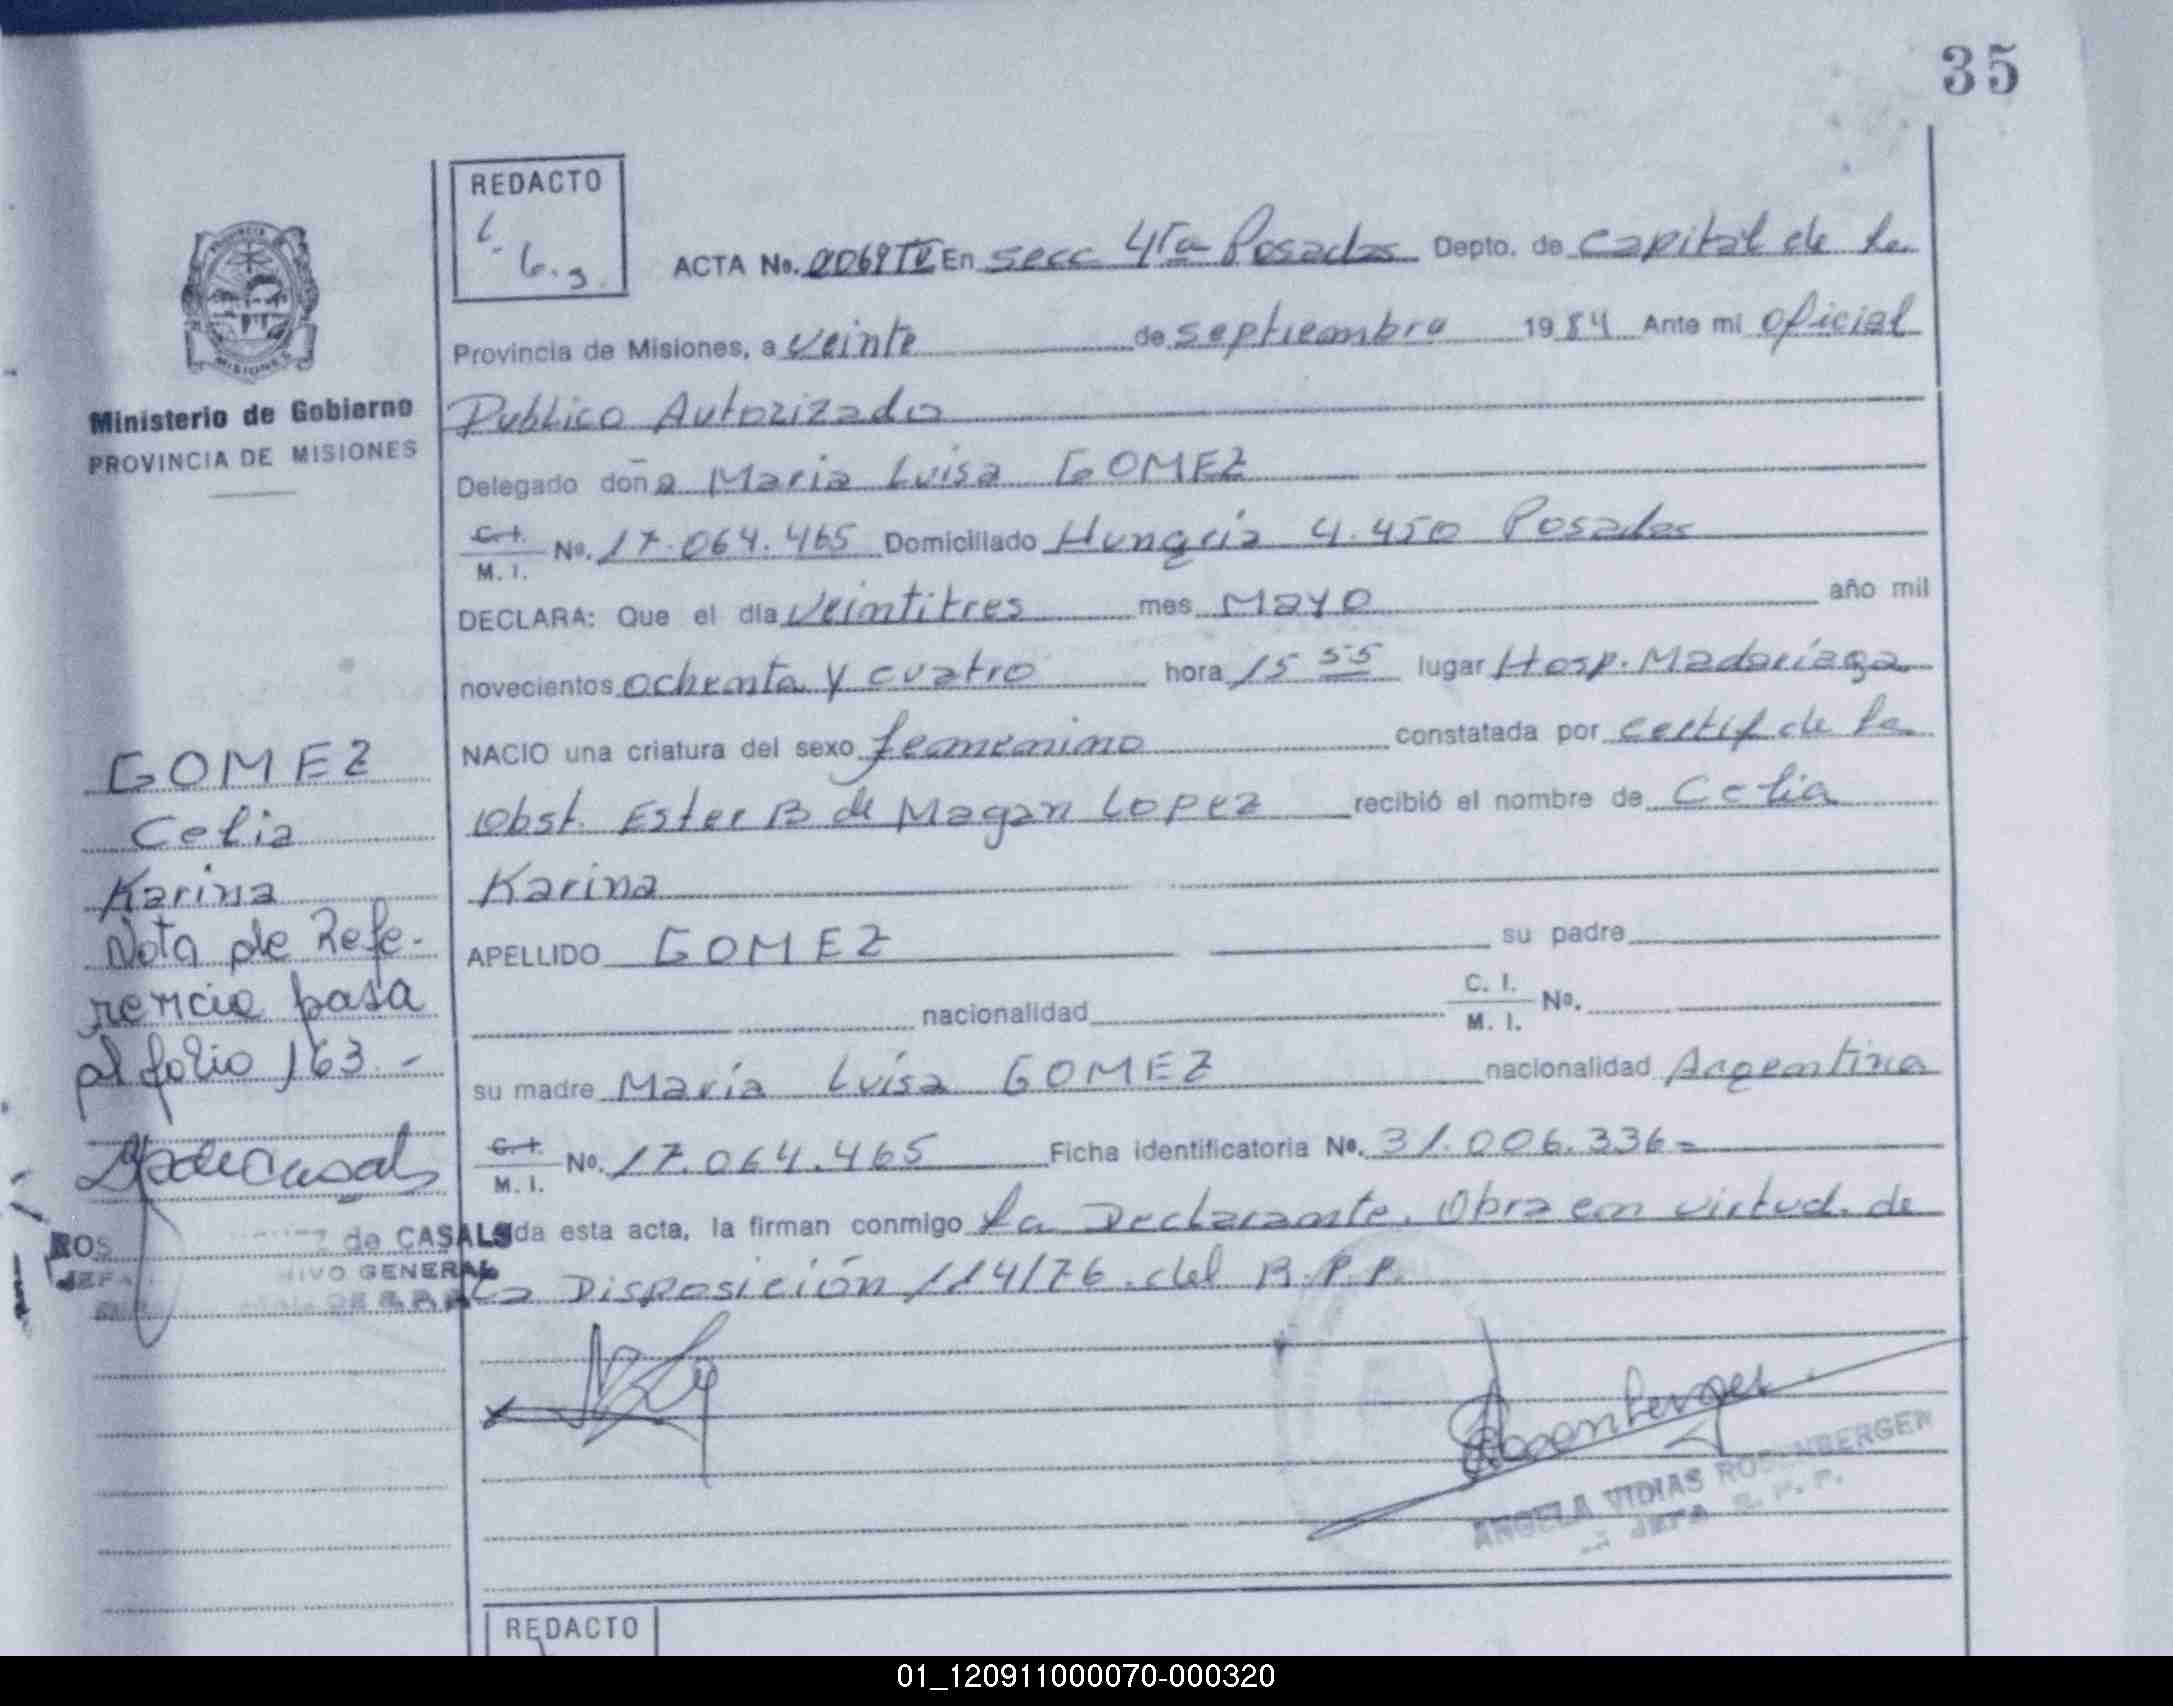 35
REDACTO
PROVINCIA
MISIONES
Ministerio de Gobierno
PROVINCIA DE MISIONES
ACTA No. 0069 IV En secc 4ra Posadas Depto. de Capital de la
Provincia de Misiones, a veinte de septiembre 1984 Ante mi oficial
Publico Autorizado
Delegado doña Maria Luisa GOMEZ
C. I. M. I. No. 17.064.465 Domiciliado Hungria 4.450 Posadas
DECLARA: Que el día veintitres mes Mayo año mil
novecientos ochenta y cuatro hora 15 55 lugar Hosp. Madariaga
NACIO una criatura del sexo femenino constatada por certif de la
Obst. Ester B de Magan Lopez recibió el nombre de Celia
Karina
APELLIDO GOMEZ su padre
nacionalidad C. I. M. I. No.
su madre María Luísa GOMEZ nacionalidad Argentina
C. I. M. I. No. 17.064.465 Ficha identificatoria No. 31.006.336=
da esta acta, la firman conmigo La Declarante. Obra en virtud. de
La Disposición 114/76. del R.P.P.
GOMEZ
Celia
Karina
Nota de Refe-
rencia pasa
al folio 163.-
de CASALS
GENERAL
Rosenberger
ANGELA VIDIAS ROSENBERGER
JEFA R. P. P.
REDACTO
01_120911000070-000320